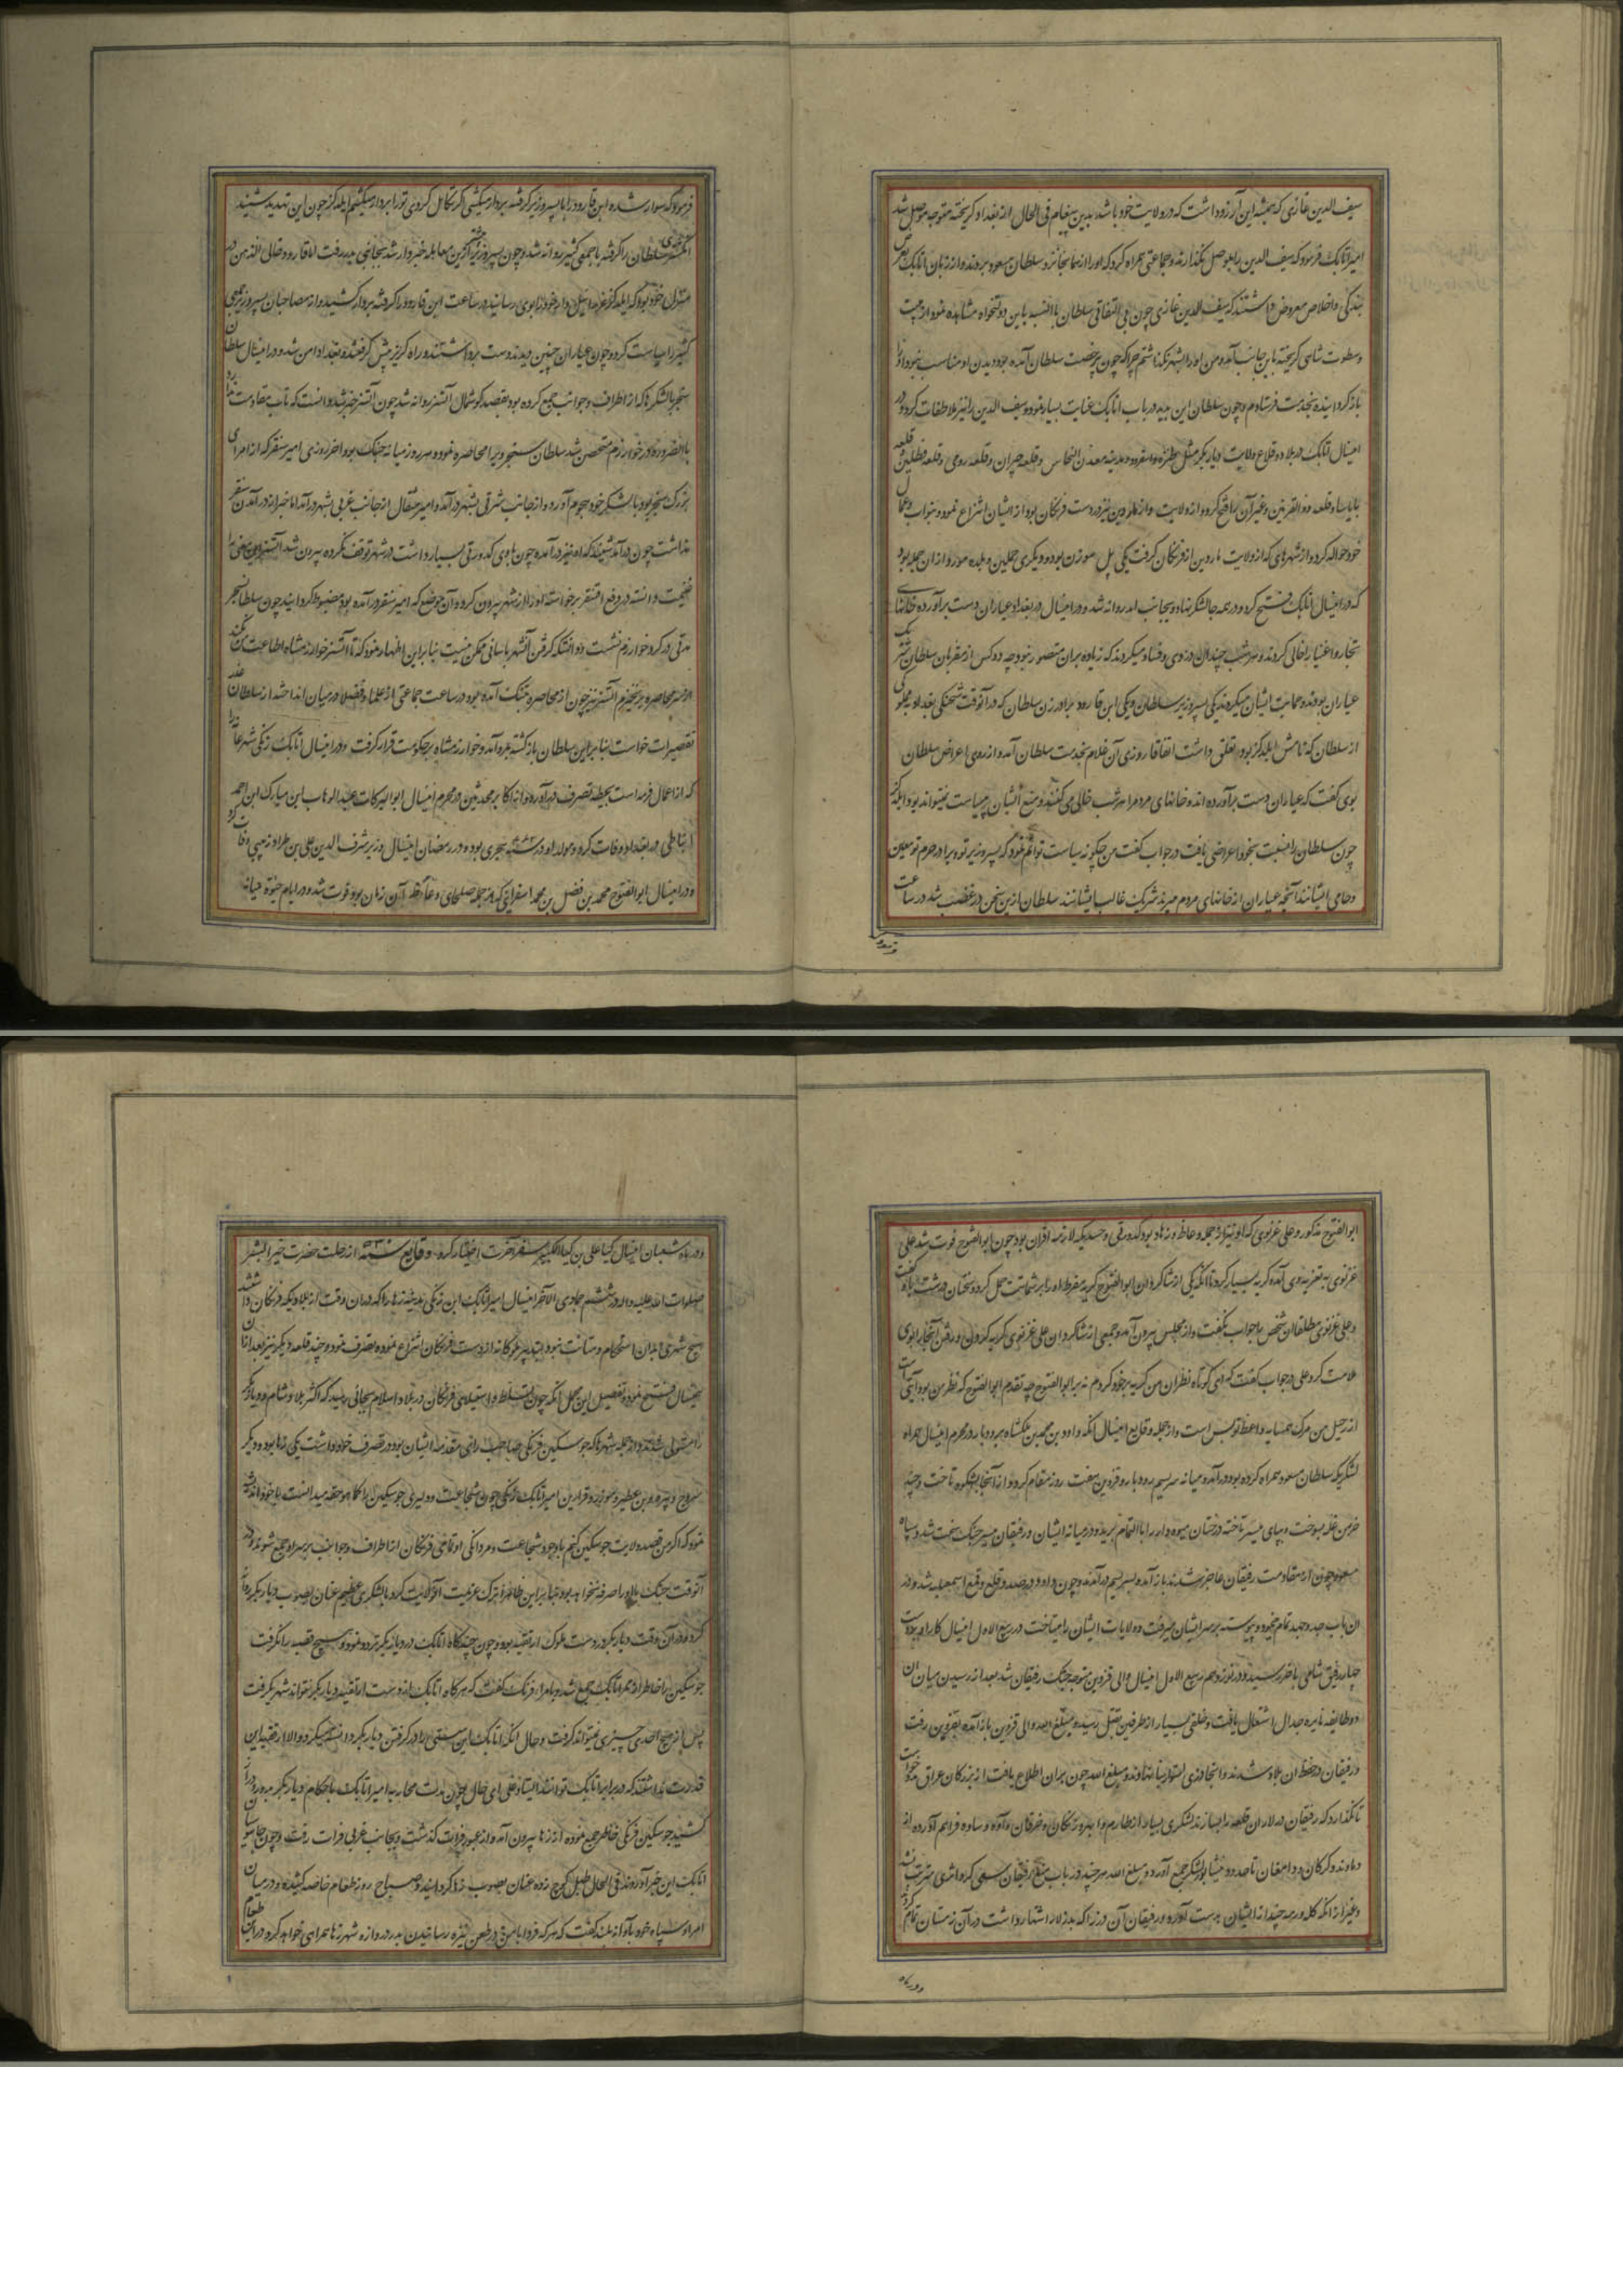 سیف الدین غازی که همیشه این آرزو داشت که در ولایت خود باشد بدین پیغام فی الحال از بغداد گریخته متوجه موصل شد
امیر اتابک فرمود که سیف الدین را بموصل نگذارند و جماعتی همراه کرد که او را از همانجا نزد سلطان مسعود بردند و از زبان اتابک بعرض
بندگی و اخلاص معروض داشتند که سیف الدین غازی چون بی التفاتی سلطان باین دولتخواه مشاهده نمود از هیبت
و سطوت شاهی گریخته باین جانب آمد و من او را بشهر نگذاشتم چرا که چون بی رخصت سلطان آمده بود دیدن او مناسب نبود او را
باز گردانیده بخدمت فرستادم و چون سلطان این بدید در باب اتابک عنایت بسیار نمود و سیف الدین را نیز ملاطفات کرد و در
امسال اتابک در بلاد و قلاع ولایت دیار بکر مثل طنزه و اسعرد و مدینه معدن النحاس و قلعه حیزان و قلعه رومی و قلعه قطلیس و قلعه
باباسا و قلعه ذو القرنین و غیر آن را فتح کرد و از ولایت ماردین نیز در دست فرنگان بود از ایشان انتزاع نمود و نواب و عمال
خود حواله کرد و از شهرهای که از ولایت ماردین از فرنگان گرفت یکی پل موزن بود و دیگری حملین و بلده موزر و از ان جمله بود
که در امسال اتابک فتح کرد و در همه جا لشکر نهاد و بجانب آمد روانه شد و در امسال در بغداد عیاران دست برآورده خانهای
تجار و اغنیا را خالی کردند و هر شب چندان دزدی و فساد میکردند که زیاده بران متصور نبود چه دو کس از مقربان سلطان شریک
عیاران بودند و حمایت ایشان میکردند یکی پسر وزیر سلطان و یکی ابن قارود برادر زن سلطان که در آنوقت شحنگی بغداد بمملوکی
از سلطان که نامش ایلدکز بود تعلق داشت اتفاقا روزی آن غلام بخدمت سلطان آمد و از روی اعراض سلطان
بوی گفت که عیاران دست برآورده اند و خانهای مردم را هر شب خالی می کنند و منع ایشان بسیاست نمیتواند بود ایلدکز
چون سلطان را نسبت بخود اعراضی یافت در جواب گفت من چگونه سیاست توانم نمود که پسر وزیر تو و برادر حرم تو معین
و حامی ایشانند آنچه عیاران از خانهای مردم میبرند شریک غالب ایشانند سلطان ازین سخن در غضب شد در ساعت
فرمود که سوار شده ابن قارود را با پسر وزیر گرفته بردار میکشی اگر تکامل کردی تو را بردار میکشم ایلدکز چون این تهدید شنید
انگشتری سلطان را گرفته با جمعی کثیر روانه شد و چون پسر وزیر ازین معامله خبردار شد بجانبی بدر رفت اما قارود خالی الذهن در
منزل خود بود که ایلدکز غره اسیل وار خود را بوی رسانید در ساعت ابن قارود را گرفته بردار کشید و از مصاحبان پسر وزیر جمعی
کثیر را سیاست کرد و چون عیاران چنین دیدند دست برداشتند و راه گریز پیش گرفتند و بغداد امن شد و در امسال سلطان
سنجر با لشکرها که از اطراف و جوانب جمع کرده بود بقصد گوشمال اتسز روانه شد چون اتسز خبر شد دانست که تاب مقاومت ندارد
بالضروره در خوارزم متحصن شد سلطان سنجر ویرا محاصره نمود و هر روز میانه جنگ بود آخر روزی امیر سنقر که از امرای
بزرگ سنجر بود با لشکر خود هجوم آورد و از جانب شرقی بشهر درآمد و امیر مثقال از جانب غربی بشهر درآمد اما خبر از درآمدن سنقر
نداشت چون درآمد شنید که او نیز درآمده چون با وی کدورتی بسیار داشت در شهر توقف نکرده بیرون شد اتسز این معنی را
غنیمت دانسته در دفع سنقر برخواسته او را از شهر بیرون کرد و آن موضع که امیر سنقر درآمده بود مضبوط گردانید چون سلطان سنجر
مدتی در گرد خوارزم نشست دانست که گرفتن آن شهر باسانی ممکن نیست بنا براین اظهار نمود که تا اتسز خوارزمشاه اطاعت من نکند
از سر محاصره برنخیزم اتسز نیز چون از محاصره بتنگ آمده بود در ساعت جماعتی از علما و فضلا در میان انداخته از سلطان عذر
تقصیرات خواست بنا براین سلطان بازگشته بمرو آمد و خوارزمشاه بر حکومت قرار گرفت و در امسال اتابک زنگی شهر عانه را
که از اعمال فرات است بحیطه تصرف درآورد و از اکابر محدثین در محرم امسال ابوالبرکات عبدالوهاب ابن مبارک ابن احمد
انماطی در بغداد وفات کرد و مولد او در سنه هجری بود و در رمضان امسال وزیر شرف الدین علی بن طراد زینبی وفات کرد
و در امسال ابوالفتوح محمد بن فضل بن محمد اسفراینی که از جمله صلحای وعاظ آن زمان بود فوت شد و در ایام حیوة میانه
ابوالفتوح مذکور و علی غزنوی که او نیز از جمله وعاظ و زهاد بود کدورتی و حسدیکه لازمه اقران بود چون ابوالفتوح فوت شد علی
غزنوی به تعزیه وی آمده گریه بسیار کرد تا آنکه یکی از شاگردان ابوالفتوح گریه مفرط او را بر شماتت حمل کرد و سخنان درشت باو گفت
و علی غزنوی مطلقا آن شخص را جواب نگفت و از مجلس بیرون آمد و جمعی از شاگردان علی غزنوی گریه کردن و رفتن آنجا را بوی
ملامت کرد علی در جواب گفت که ای کوتاه نظران من گریه بر خود کردم نه بر ابوالفتوح چه تقدم ابوالفتوح که نظر من بود آیتی است
از رحیل من مرگ همسایه واعظ تو بس است و از جمله وقایع امسال آنکه داود بن محمد بن ملکشاه برودبار در محرم امسال همراه
لشکریکه سلطان مسعود همراه کرده بود درآمده میانه سریسم رودبار و قزوین هفت روز مقام کرد و از آنجا بشکوه تاخت و چند
خرمن غله بسوخت و بپای میسر تاخته درختان میوه دار را بالتمام بریده و در میانه ایشان و رفیقان میسر جنگ سخت شد و سپاه
مسعود چون از مقاومت رفیقان عاجز شدند باز آمده بسریسم درآمدند و چون داود در صدد قلع و قمع اسمعیلیه شد و در
ان باب جد و جهد تمام نمود و پیوسته بر سر ایشان میرفت و ولایات ایشان را میتاخت در ربیع الاول امسال کار او بدست
چهار رفیق شامی باخر رسید و در نوزدهم ربیع الاول امسال والی قزوین متوجه جنگ رفیقان شد بعد از رسیدن میان ان
دو طایفه نایره جدال اشتعال یافت و خلقی بسیار از طرفین بقتل رسید و مبلغ الله والی قزوین باز آمده بقزوین رفت
و رفیقان در حفظ ان بلاد شدند و آنجا دزی استوار بنا نهادند و مبلغ الله چون بران اطلاع یافت از بزرگان عراق مدد خواست
تا نگذارد که رفیقان در لاران قلعه را بسازند لشکری بسیار از طارم و ابهر و زنگان و خرقان و آوه و ساوه فراهم آورده از
دماوند و گرگان و دامغان تا حدود نیشابور لشکر جمع آورد و مبلغ الله هر چند در باب منع رفیقان سعی کرد اثری مترتب نشد
و بغیر از آنکه گله و رمه چند از ایشان بدست آورد و رفیقان آن دز را که بدز لار اشتهار داشت در آن زمستان تمام کردند
و در ماه شعبان امسال کیا علی بن کیا بزرگ سفر آخرت اختیار کرد وقایع سنه از رحلت حضرت خیر البشر
صلوات الله علیه و اله در ششم جمادی الآخر امسال امیر اتابک ابن زنگی مدینه رها را که در ان وقت از بلادیکه فرنگان داشتند
هیچ شهری ابدان استحکام و متانت نبود بتدبیر ملوکانه از دست فرنگان انتزاع نموده بتصرف نمود و چند قلعه دیگر نیز بعد از ان
بهمسال فتح نمود و تفصیل این مجمل آنکه چون تسلط و استیلای فرنگان در بلاد اسلام بجائی رسید که اکثر بلاد شام و دیار بکر
را مستولی شدند و از جمله شهرها که جوسکین فرنگی صاحب رای و مقدمه ایشان بود در تصرف خود داشت یکی رها بود و دیگر
سروج و بیره و بن عطیر و موزر و قرادین امیر اتابک زنگی چون شجاعت و دلیری جوسکین را کما هو حقه میدانست با خود اندیشه
نمود که اگر من قصد ولایت جوسکین کنم با وجود شجاعت و مردانگی او تمامی فرنگان از اطراف و جوانب بر سر او جمع شوند و در
آنوقت جنگ با او را صرفه نخواهد بود بنا براین ظاهرا ترک عزیمت آنولایت کرد با لشکری عظیم عنان بصوب دیار بکر روانه
کرد و در آن وقت دیار بکر در دست ملوک ارتقیه بود و چون چندگاه اتابک در دیار بکر تردد نمود و هیچ قصبه را نگرفت
جوسکین را خاطر از ممر اتابک جمع شد و با مراء فرنگ گفت که هرگاه اتابک از دست ارتقیه دیار بکر نتواند شهر بگرفت
پس از هیچ احدی چیزی نمیتواند گرفت و حال آنکه اتابک این سستی را در گرفتن دیار بکر دانسته میکرد و الا ارتقیه را این
قدرت نداشتند که در برابر اتابک توانند ایستاد و علی ای حال چون مدت محاربه امیر اتابک با حکام دیار بکر بدور و دراز
کشید جوسکین فرنگی خاطر جمع نموده از رها بیرون آمد و از عبور فرات گذشت و بجانب غربی فرات رفت و چون جاسوسان
اتابک این خبر آوردند فی الحال طبل کوچ زده عنان بصوب رها گردانید و صباح روز طعام خاصه کشیده و در میان
امرا و سپاه خود بآواز بلند گفت که هر که فردا با من در طعن نیزه رسانیدن بدر دروازه شهر رها همراهی خواهد کرد در ان طعام